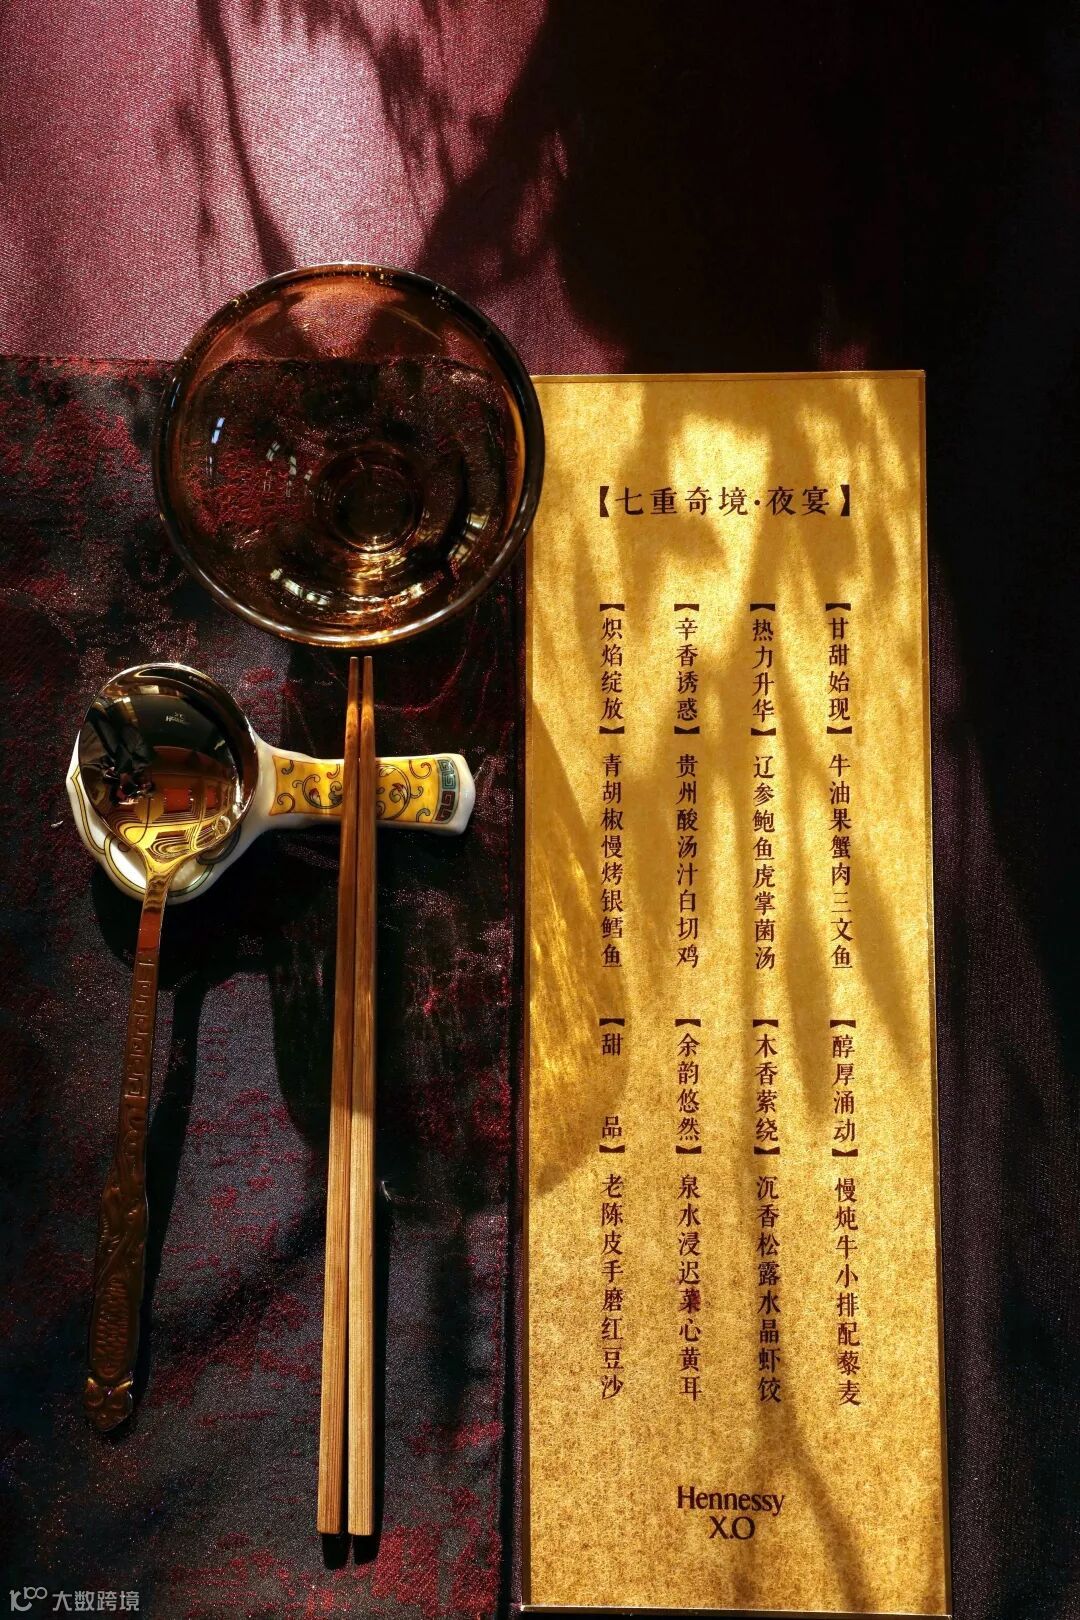 【七重奇境·夜宴】
【甘甜始现】牛油果蟹肉三文鱼
【热力升华】辽参鲍鱼虎掌菌汤
【辛香诱惑】贵州酸汤汁白切鸡
【炽焰绽放】青胡椒慢烤银鳕鱼
【醇厚涌动】慢炖牛小排配藜麦
【木香萦绕】沉香松露水晶虾饺
【余韵悠然】泉水浸迟菜心黄耳
【甜品】老陈皮手磨红豆沙
Hennessy
X.O
大数跨境